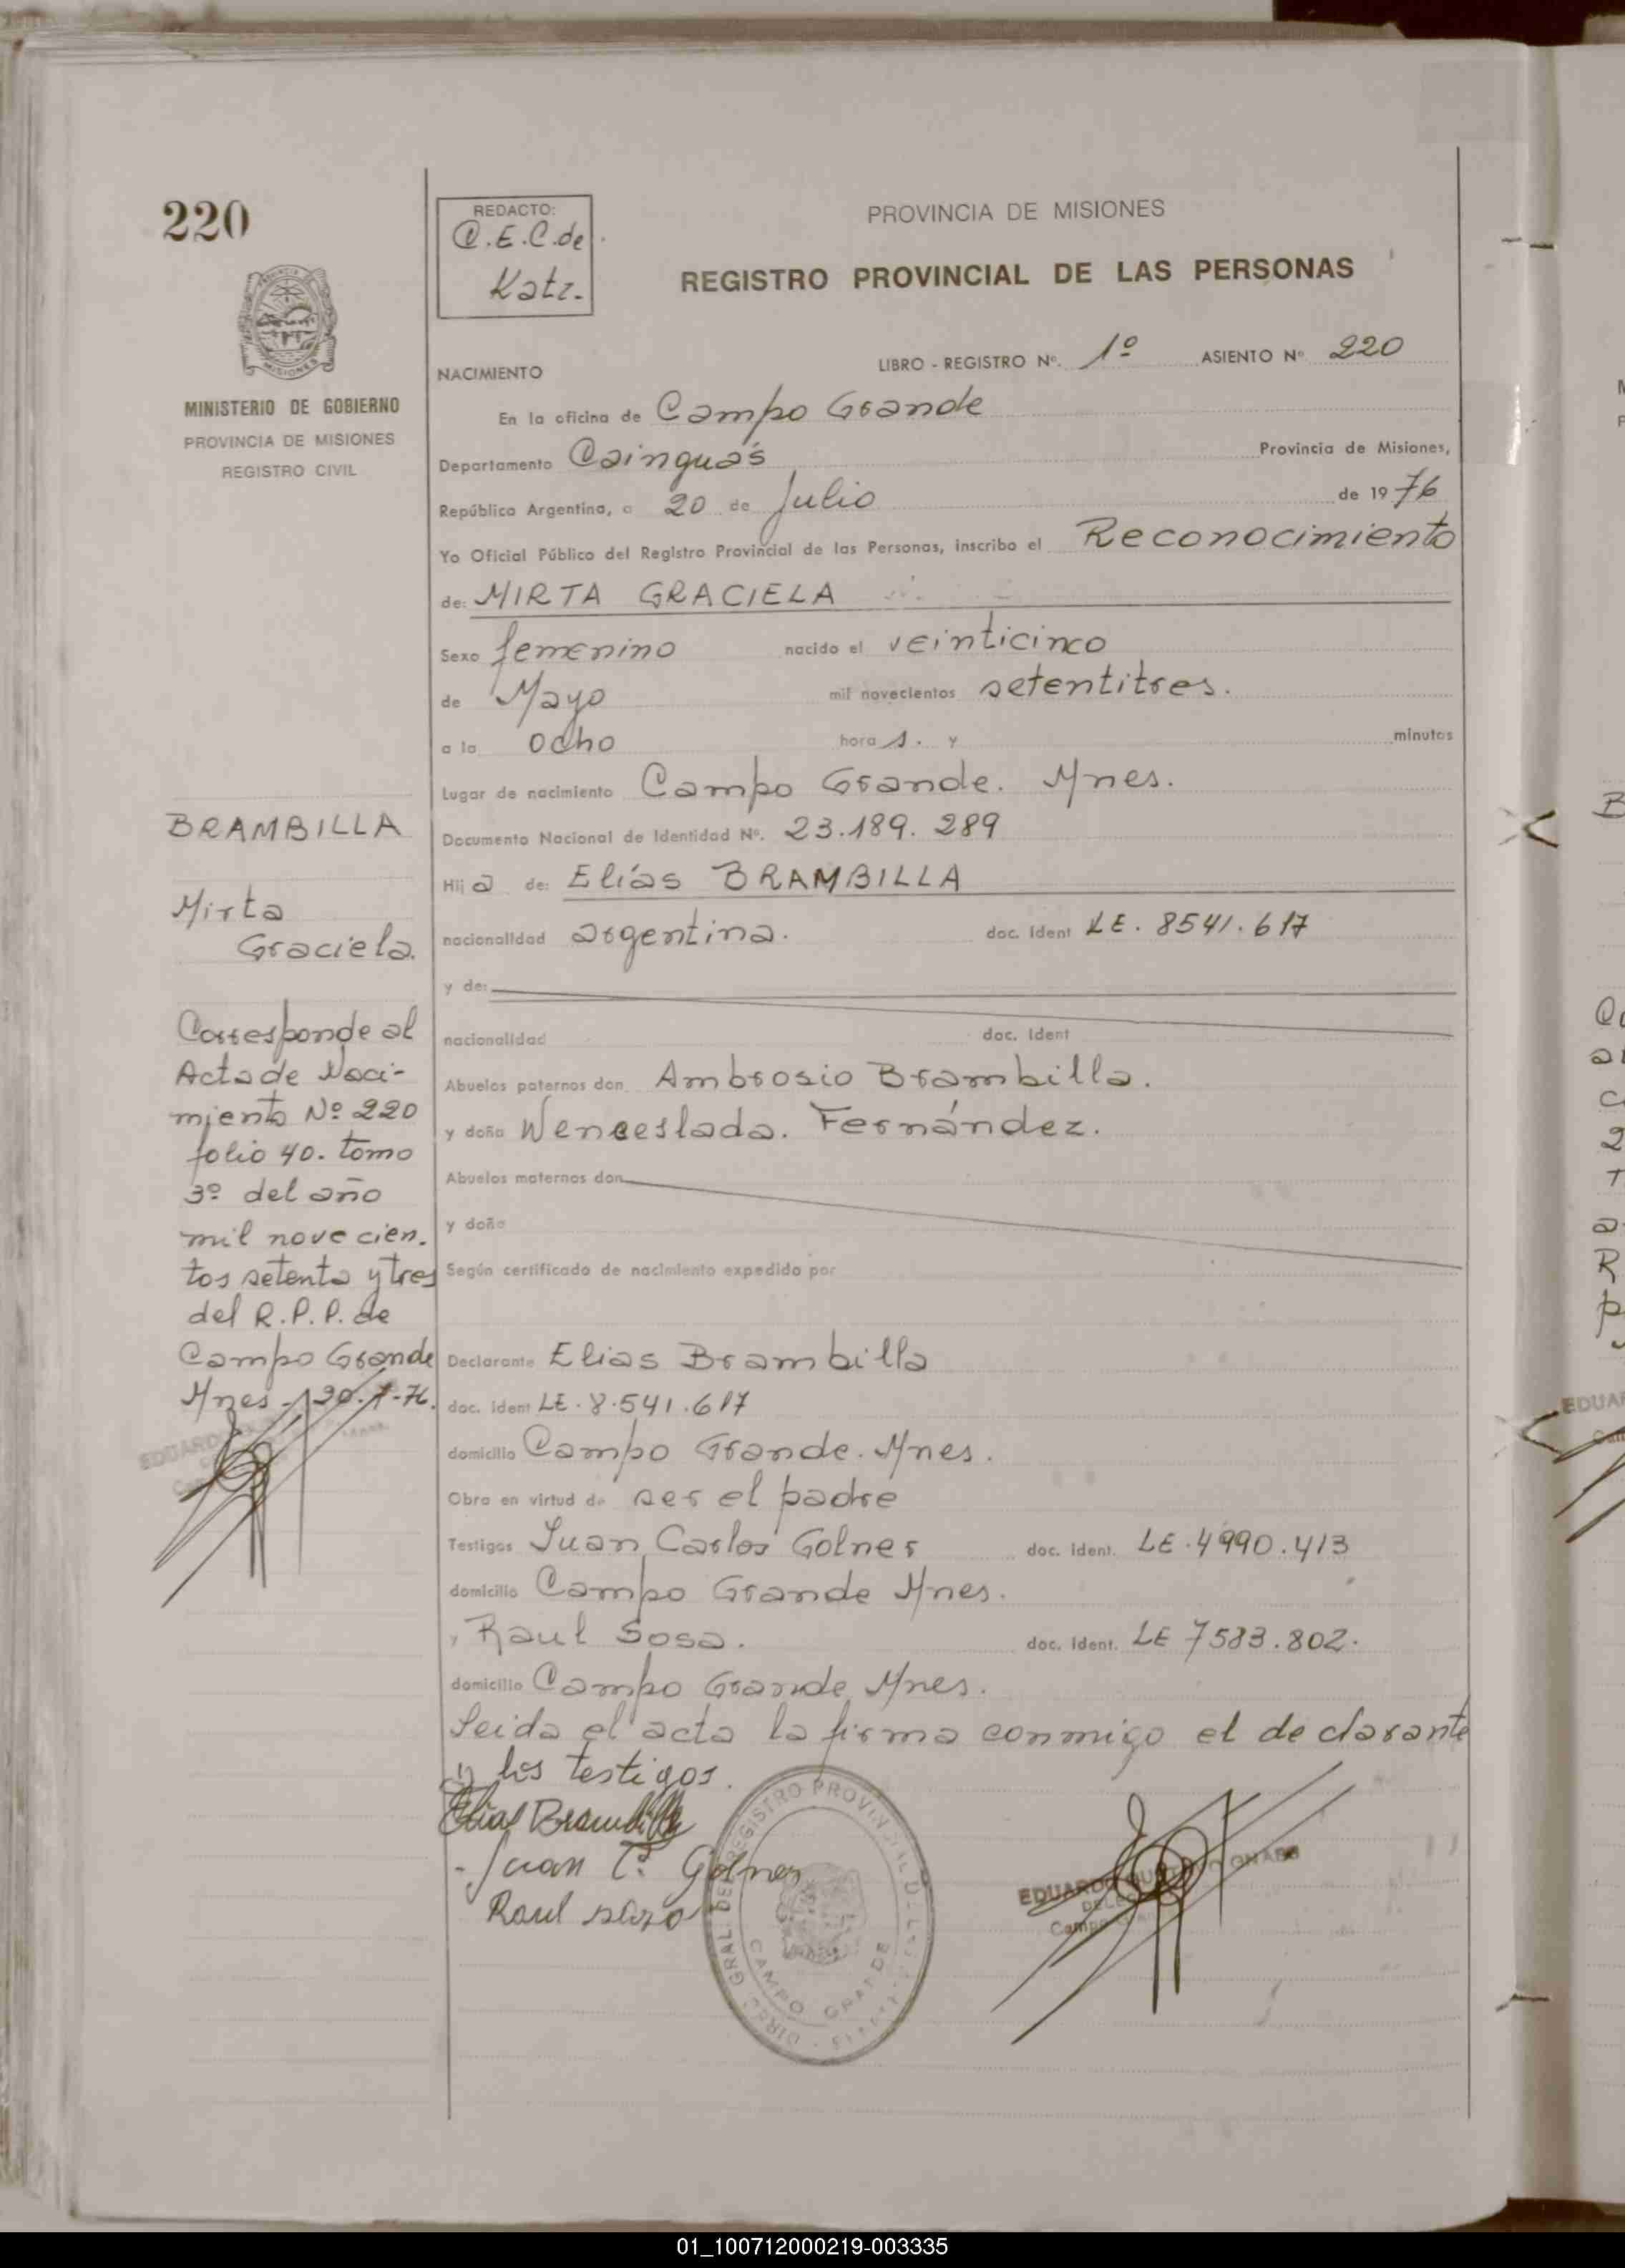 220
REDACTO:
C.E.C.de
Katz.
PROVINCIA DE MISIONES
REGISTRO PROVINCIAL DE LAS PERSONAS
MISIONES
MINISTERIO DE GOBIERNO
PROVINCIA DE MISIONES
REGISTRO CIVIL
NACIMIENTO LIBRO - REGISTRO Nº. 1º ASIENTO Nº 220
En la oficina de Campo Grande
Departamento Cainguás Provincia de Misiones,
República Argentina, a 20 de Julio de 1976
Yo Oficial Público del Registro Provincial de las Personas, inscribo el Reconocimiento
de: MIRTA GRACIELA
Sexo femenino nacido el veinticinco
de Mayo mil novecientos setentitres.
a la ocho hora s. y minutos
Lugar de nacimiento Campo Grande. Mnes.
Documento Nacional de Identidad Nº. 23.189.289
Hija de: Elías BRAMBILLA
nacionalidad argentina. doc. ident LE. 8541.617
y de:
nacionalidad doc. ident
Abuelos paternos don Ambrosio Brambilla.
y doña Wenceslada. Fernández.
Abuelos maternos don
y doña
Según certificado de nacimiento expedido por
Declarante Elias Brambilla
doc. ident LE. 8.541.617
domicilio Campo Grande. Mnes.
Obra en virtud de ser el padre
Testigos Juan Carlos Golner doc. ident. LE.4990.413
domicilio Campo Grande Mnes.
, Raul Sosa. doc. ident. LE 7583.802.
domicilio Campo Grande Mnes.
Leida el acta la firma conmigo el declarante
y los testigos.
Elias Brambilla
Juan C. Golner
Raul
BRAMBILLA
Mirta
Graciela.
Corresponde al
Acta de Naci-
miento Nº 220
folio 40. tomo
3º del año
mil novecien.
tos setenta y tres
del R.P.P. de
Campo Grande
Mnes. 20-7-76.
EDUARDO
DIREC. GRAL. DEL REGISTRO PROVINCIAL DE LAS
CAMPO GRANDE
EDUARDO GUSTAVO
Campo
EDUAR
01_100712000219-003335